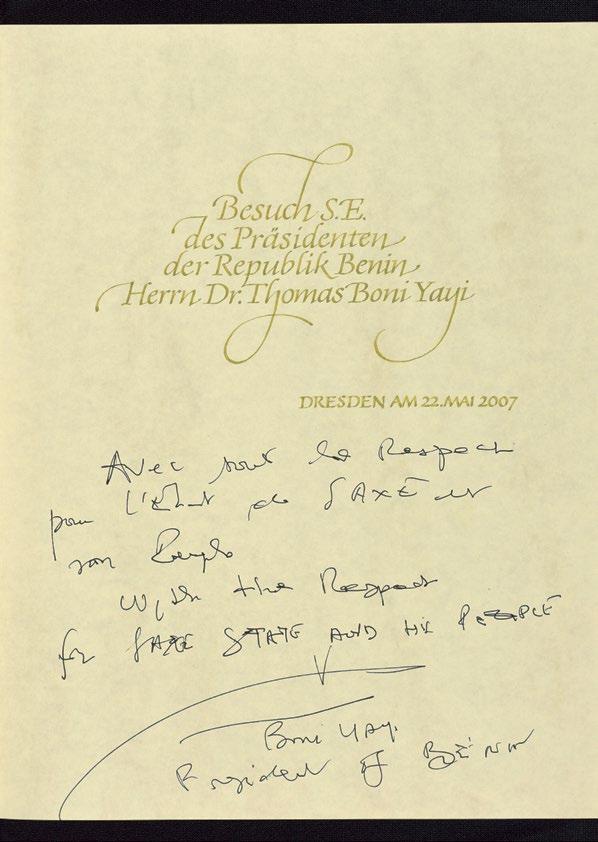 Besuch S.E.
des Präsidenten
der Republik Benin
Herrn Dr. Thomas Boni Yayi
DRESDEN AM 22. MAI 2007
Avec tout le Respect
pour l'État de SAXE et
son Peuple
With the Respect
for SAXE STATE AND his PEOPLE
Boni Yayi
President of BENIN